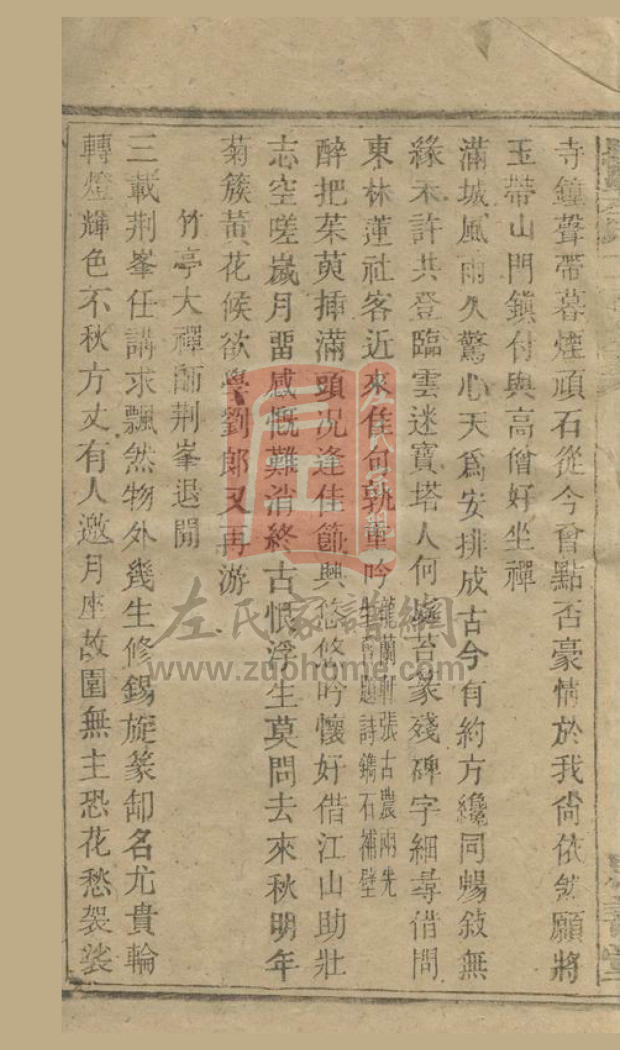 寺鐘聲帶暮煙頑石從今曾點否豪情於我尙依然願將
玉帶山門鎭付與高僧好坐禪
滿城風雨久驚心天爲安排成古今有約方纔同暢敍無
緣未許共登臨雲迷寶塔人何處苔篆殘碑字細尋借問
東林蓮社客近來佳句孰重吟龍蘭軒張古農兩先
生曾題詩鐫石補壁
醉把茱萸揷滿頭況逢佳節興悠悠吟懷好借江山助壯
志空嗟歲月畱感慨難消終古恨浮生莫問去來秋明年
菊簇黃花候欲學劉郞又再游
竹亭大禪師荆峯退閒
三載荆峯任講求飄然物外幾生修錫旋篆卸名尤貴輪
轉燈輝色不秋方丈有人邀月座故園無主恐花愁袈裟
左氏家譜網
www.zuohome.com